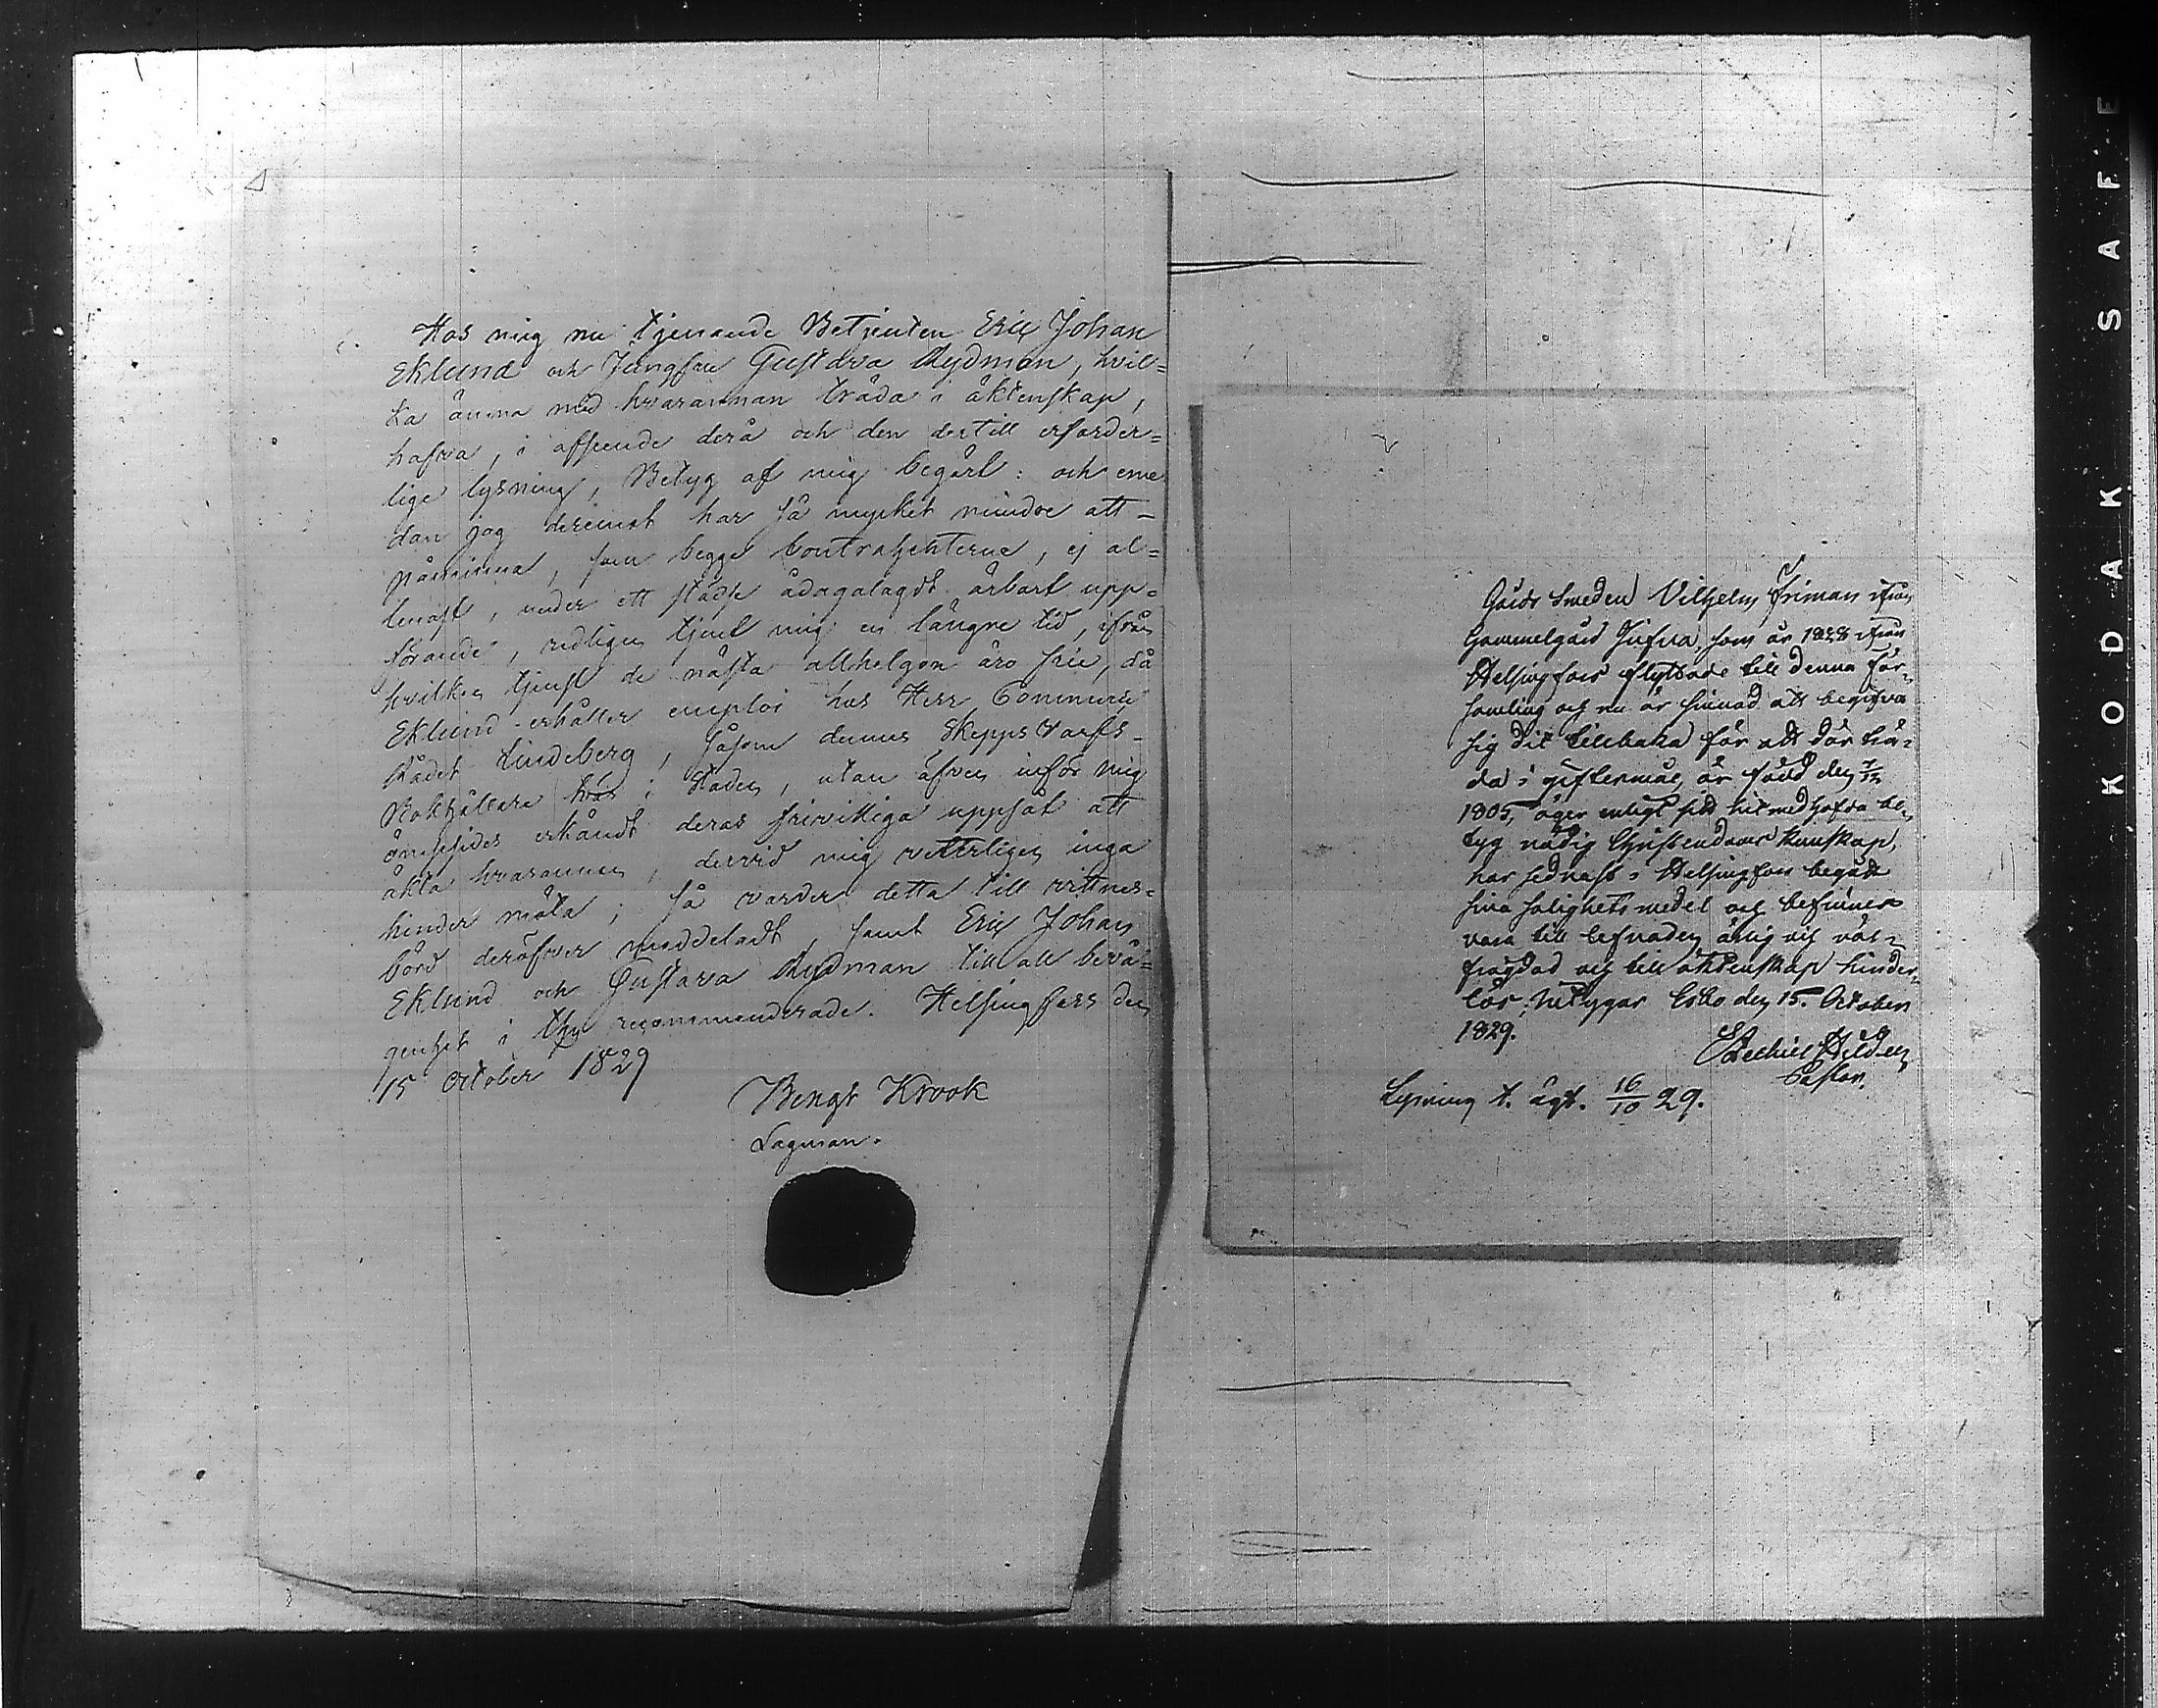 Hos mig nu tjenande Betjenten Eric Johan
Eklund och Jungfru Gustava Rydman, hvil=
ka ämna med hvarannan träda i äktenskap,
hafva, i afseende derå och den dertill erforder=
lige lysning, Betyg af mig begärt: och eme
dan jag deremot har så mycket mindre att
påminna, som begge Contrahenterne, ej al=
lenast, under ett städse ådagalagdt ärbart upp=
förande, redligen tjent mig en längre tid, ifrån
hvilken tjenst de nästa allhelgon äro frie, då
Eklund erhåller emploi hos Herr Commerce
Rådet Lindeberg, såsom dennes Skepps Varfs-
Bokhållare här i Staden, utan äfven inför mig
ömsesides erkändt deras friwilliga uppsåt att
äkta hvarannan, dervid mig vetterligen inga
hinder möta; så varder detta till vittnes=
börd deröfver meddeladt, samt Eric Johan
Eklund och Gustava Rydman till all bevå=
genhet i thy recommenderade. Helsingfors den
15 October 1829
Bengt Krook
Lagman.
Gårds Smeden Vilhelm Friman ifrån
Gammelgård som år 1828 ifrån
Helsingfors flyttade till denna för=
samling och nu är sinnad att begifva
sig dit tillbaka för att där trä=
da i giftermål, är född den
1805, äger enligt sitt hit medhafda be=
tyg nödig Christendoms kunskap,
har sednast i Helsingfors begått
sina salighetsmedel och befinnes
vara till lefnaden ärlig och väl=
frägdad och till äktenskap hinder=
lös; betygar Esbo den 15. October
1829.
Ezechiel Hildeen
Pastor.
Lysning t. ägt. 16/10 29.
K O D A K S A F E